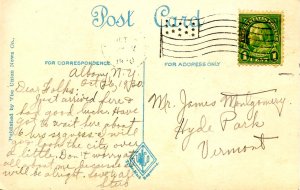 Post Card
FOR CORRESPONDENCE
FOR ADDRESS ONLY
Published by The Union News Co.
Albany N.Y.
Oct 26, 1930.
Dear Folks:
Just arrived here &
had good luck. Have
got to wait here about
6 hrs so guess I will
look the city over
a little. Don't worry
all about me because I
will be alright. Love to all
Mr. James Montgomery
Hyde Park
Vermont
1